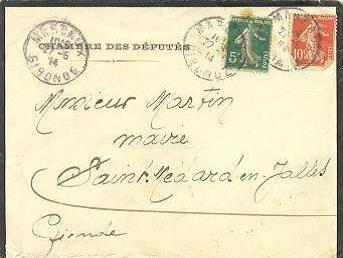 CHAMBRE DES DÉPUTÉS
5
10
Monsieur Martin
maire
Saint-Médard-en-Jalles
Gironde